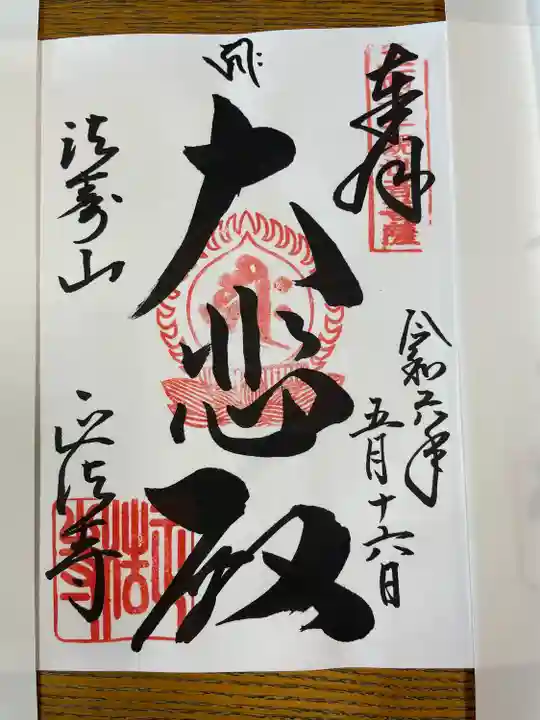 奉拝
令和六年
五月十六日
大悲殿
法寿山
正法寺